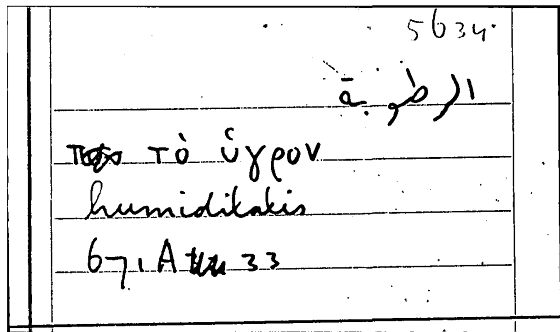 5634
الرطوبة
τὸ ὑγρον
humiditatis
671 A 33